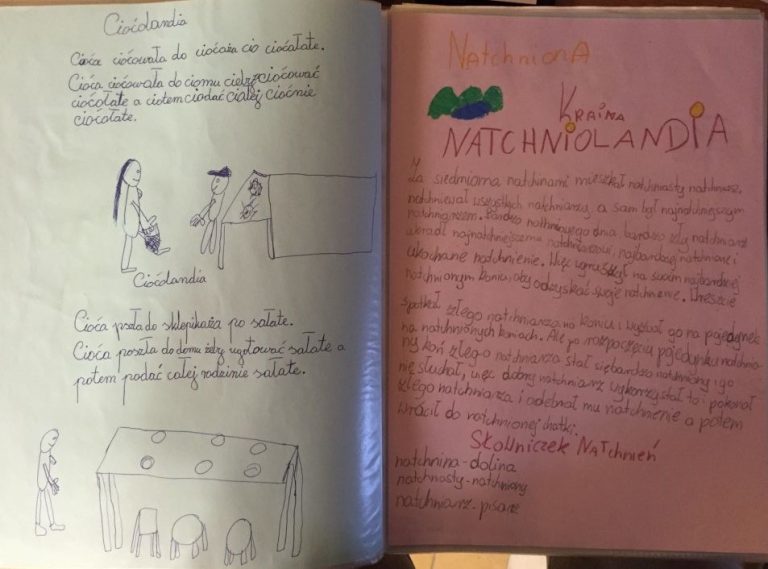 Ciocolandia
Cioća cioćowała do ciocaża cio ciocatate.
Cioća ciocowała do ciomu cieby ciocować
ciocolate a ciotem ciodać ciałej ciocnie
ciocatate.
Ciocolandia
Cioća poszła do sklepikaża po sałate.
Cioća poszła do domu żeby ugotować sałate, a
potem podać calej rodzinie sałate.
NatchnionA
KrainA
NATCHNIOLANDIA
Za siedmioma natchninami mieszkał natchniasty natchniusz,
natchniewał wszystkich natchniarzy, a sam był najnatchniejszym
natchniarzem. Bardzo natchnionego dnia, bardzo zły natchniarz
ukradł najnatchniejszemu natchniarzowi, najbardziej natchnione i
ukochane natchnienie. Więc wyruszył na swoim najbardziej
natchnionym koniu, aby odzyskać swoje natchnienie. Wreszcie
spotkał złego natchniarza na koniu i wyzwał go na pojedynek
na natchnionych koniach. Ale po rozpoczęciu pojedynku natchnio-
ny koń złego natchniarza stał się bardzo natchniony i go
nie słuchał, więc dobry natchniarz wykorzystał to i pokonał
złego natchniarza i odebrał mu natchnienie a potem
wrócił do natchnionej chatki.
Słowniczek Natchnień
natchnina - dolina
natchniasty - natchniony
natchniarz - pisarz